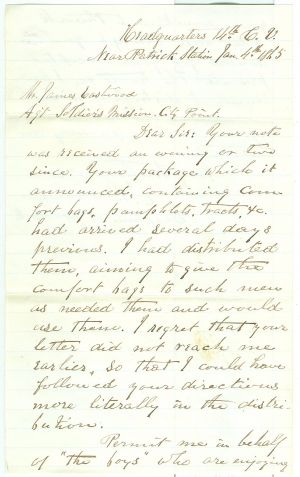 Headquarters 14th C. V.
Near Patrick Station Jan. 4th 1865
Mr. James Eastwood
Agt Soldiers Mission. City Point.
Dear Sir: Your note
was received an evening or two
since. Your package which it
announced, containing com
fort bags, pamphlets, tracts, &c.
had arrived several days
previous. I had distributed
them, aiming to give the
comfort bags to such men
as needed them and would
use them. I regret that your
letter did not reach me
earlier, so that I could have
followed your directions
more literally in the distri-
bution.
Permit me in behalf
of "the boys" who are enjoying